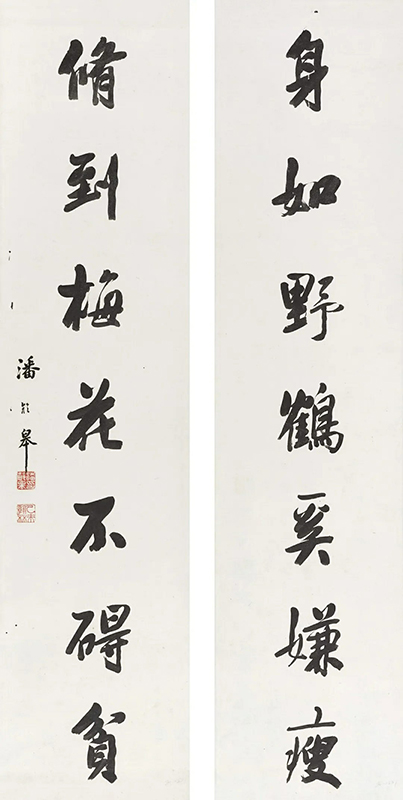 身如野鶴奚嫌瘦
脩到梅花不礙貧
潘齡皋